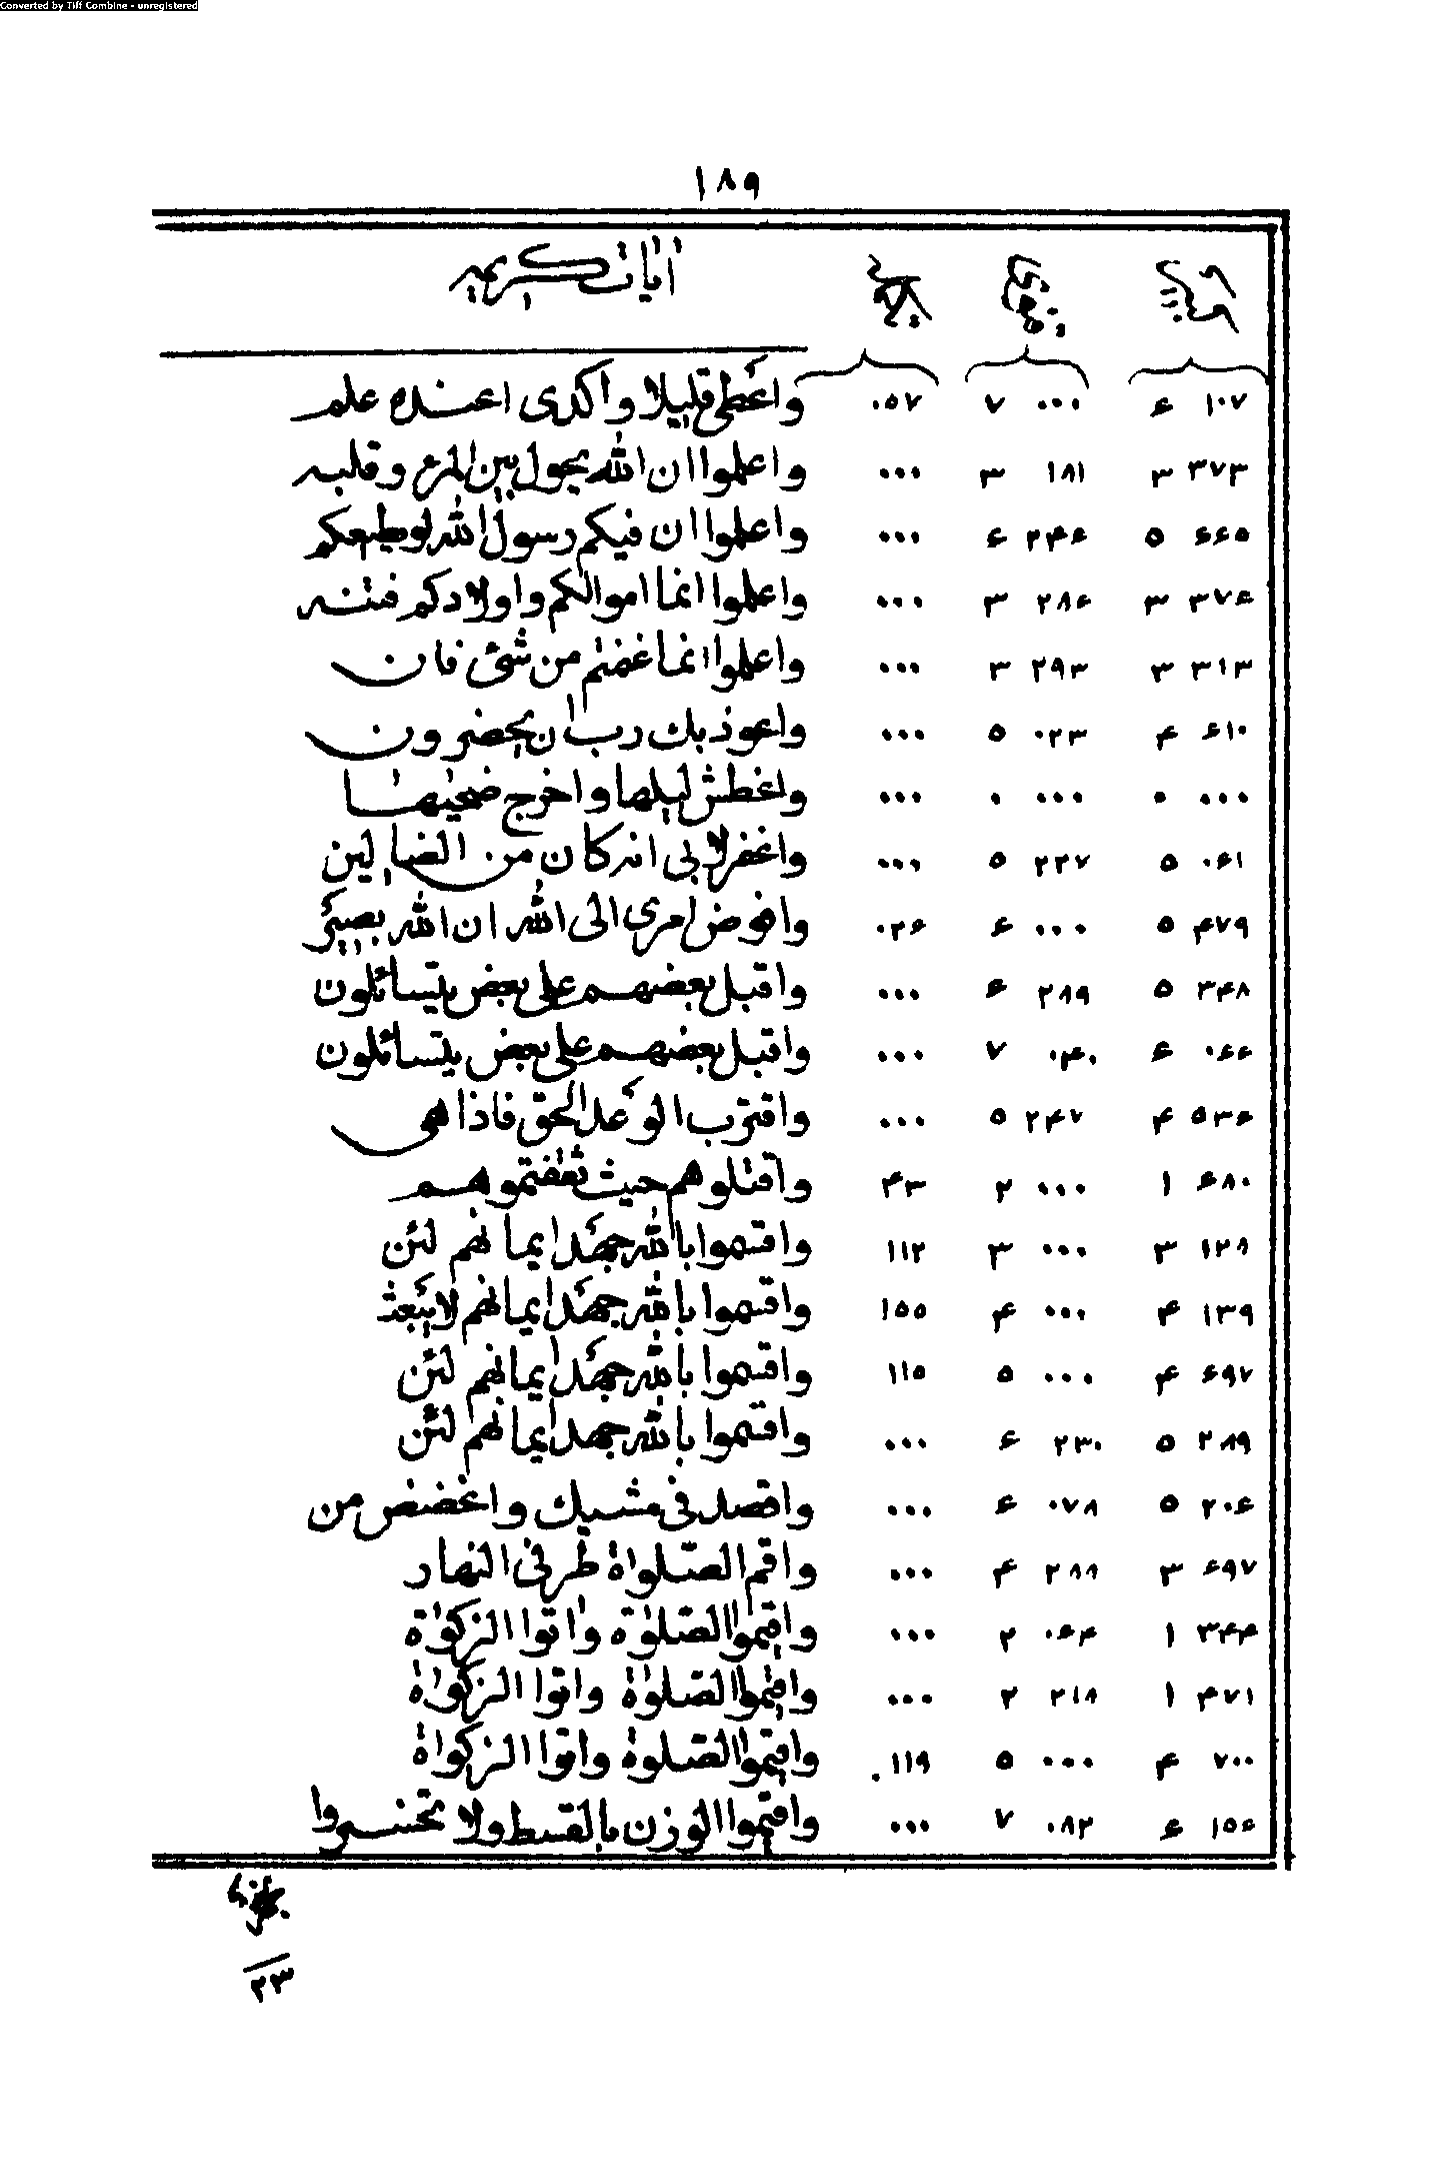 Converted by Tiff Combine - unregistered
١٨٩
آیات کریمه
۱۰۷ ۶ ۰۰۰ ۷ ۰۵۷ واعطی قلیلا واکدی اعنده علم
۳۷۳ ۳ ۱۸۱ ۳ ۰۰۰ واعلموا ان الله یحول بین المرء وقلبه
۶۶۵ ۵ ۲۴۶ ۶ ۰۰۰ واعلموا ان فیکم رسول الله لو یطیعکم
۳۷۶ ۳ ۲۸۶ ۳ ۰۰۰ واعلموا انما اموالکم واولادکم فتنه
۳۱۳ ۳ ۲۹۳ ۳ ۰۰۰ واعلموا انما غنمتم من شئ فان
۶۱۰ ۴ ۰۲۳ ۵ ۰۰۰ واعوذ بك رب ان یحضرون
۰۰۰ ۰ ۰۰۰ ۰ ۰۰۰ واغطش لیلها واخرج ضحیها
۰۶۱ ۵ ۲۲۷ ۵ ۰۰۰ واغفر لابی انه کان من الضالین
۴۷۹ ۵ ۰۰۰ ۶ ۰۲۶ وافوض امری الی الله ان الله بصیر
۳۴۸ ۵ ۲۸۹ ۶ ۰۰۰ واقبل بعضهم علی بعض یتسائلون
۰۶۶ ۶ ۰۴۰ ۷ ۰۰۰ واقبل بعضهم علی بعض یتسائلون
۵۳۶ ۴ ۲۴۷ ۵ ۰۰۰ واقترب الوعد الحق فاذا هی
۶۸۰ ۱ ۰۰۰ ۲ ۴۳ واقتلوهم حیث ثقفتموهم
۱۲۸ ۳ ۰۰۰ ۳ ۱۱۲ واقسموا بالله جهد ایمانهم لئن
۱۳۹ ۴ ۰۰۰ ۴ ۱۵۵ واقسموا بالله جهد ایمانهم لا یبعث
۶۹۷ ۴ ۰۰۰ ۵ ۱۱۵ واقسموا بالله جهد ایمانهم لئن
۲۸۹ ۵ ۲۳۰ ۶ ۰۰۰ واقسموا بالله جهد ایمانهم لئن
۲۰۶ ۵ ۰۷۸ ۶ ۰۰۰ واقصد فی مشیك واغضض من
۶۹۷ ۳ ۲۸۸ ۴ ۰۰۰ واقم الصلواة طرفی النهار
۳۴۴ ۱ ۰۶۴ ۲ ۰۰۰ واقیموا الصلوة واتوا الزکوة
۴۷۱ ۱ ۲۱۸ ۲ ۰۰۰ واقیموا الصلوة واتوا الزکواة
۷۰۰ ۴ ۰۰۰ ۵ ۱۱۹ واقیموا الصلوة واتوا الزکواة
۱۵۶ ۶ ۰۸۲ ۷ ۰۰۰ واقیموا الوزن بالقسط ولا تخسروا
۲۳